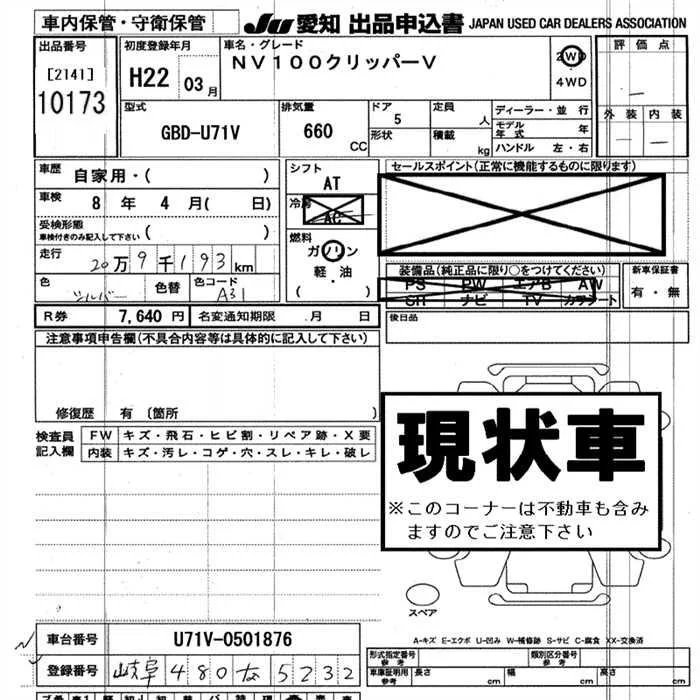 車内保管・守衛保管
JU 愛知 出品申込書 JAPAN USED CAR DEALERS ASSOCIATION
出品番号
[2141]
10173
初度登録年月
H22 03 月
車名・グレード
NV100クリッパーV
2WD
4WD
評価点
外装 内装
型式
GBD-U71V
排気量
660
CC
ドア
5
形状
定員
人
積載
kg
ディーラー・並行
モデル年式 年
ハンドル 左・右
車歴 自家用・( )
車検 8 年 4 月( 日)
受検形態
車検付きのみ記入して下さい ( )
走行
20万9千193km
色 シルバー 色替 色コード A31
シフト
AT
冷房
AC
燃料
ガソリン
軽・油
( ・ )
セールスポイント(正常に機能するものに限ります)
装備品(純正品に限り○をつけてください)
PS PW エアB AW
SR ナビ TV カワシート
新車保証書
有・無
R券 7,640 円 名変通知期限 . 月 日
後日品
注意事項申告欄(不具合内容等は具体的に記入して下さい)
修復歴 有 〔箇所 〕
検査員
記入欄
FW キズ・飛石・ヒビ割・リペア跡・X要
内装 キズ・汚レ・コゲ・穴・スレ・キレ・破レ
現状車
※このコーナーは不動車も含み
ますのでご注意下さい
スペア
A-キズ E-エクボ U-凹み W-補修跡 S-サビ C-腐食 XX-交換済
車台番号 U71V-0501876
登録番号 岐阜 480 な 5232
形式指定番号
参考
類別区分番号
参考
車庫証明用
参考
長さ cm 幅 cm 高さ cm